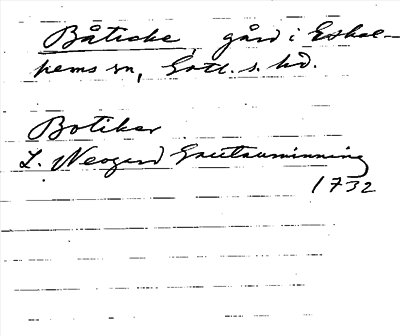 Båticke, gård i Eskel-
hems sn, Gotl. s. hd.
Botiker
L. Neogard Gautauminning
1732